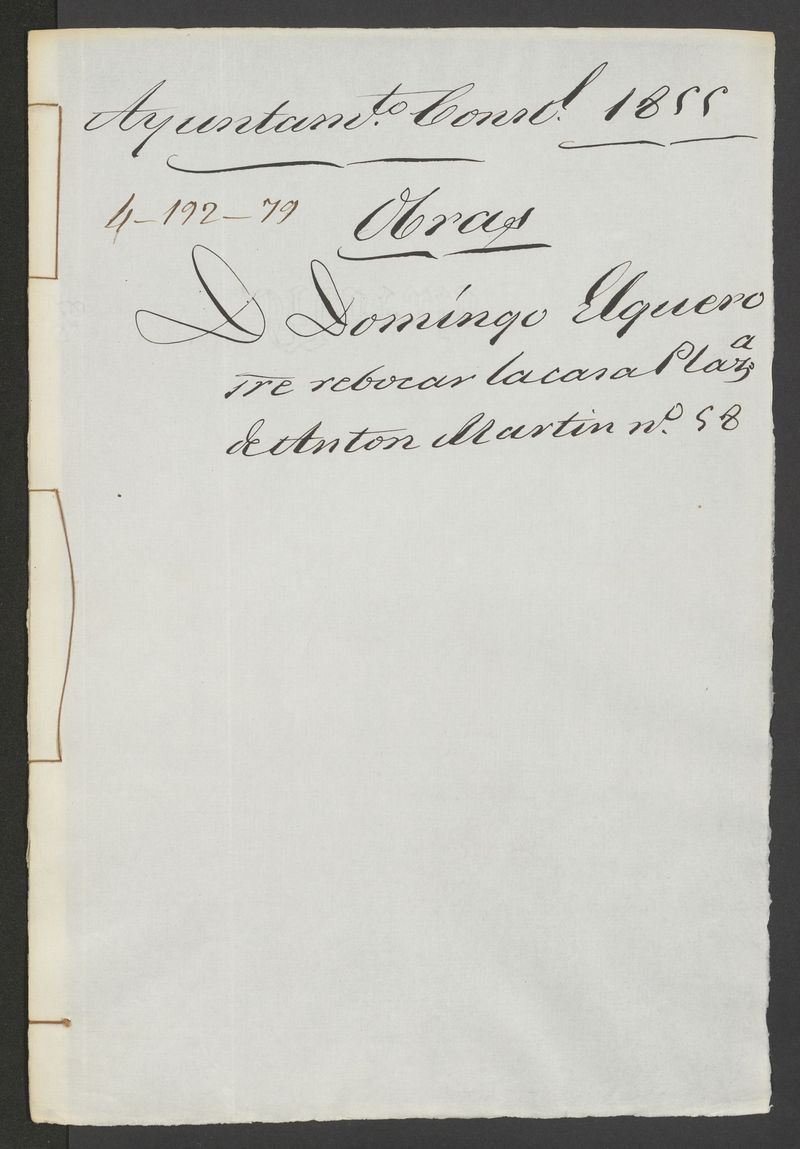 Ayuntam.to Consl. 1855
4-192-79
Obras
D Domingo Elguero
sre rebocar la casa Plaza
de Anton Martin n.o 58